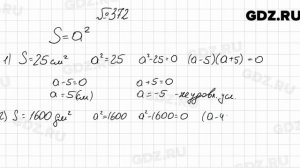 GDZ.RU
№372
S=a²
1) S=25см² a²=25 a²-25=0 (a-5)(a+5)=0
a-5=0 a+5=0
a=5(см) a=-5 -не удовл. усл.
2) S=1600дм² a²=1600 a²-1600=0 (a-4
GDZ.RU